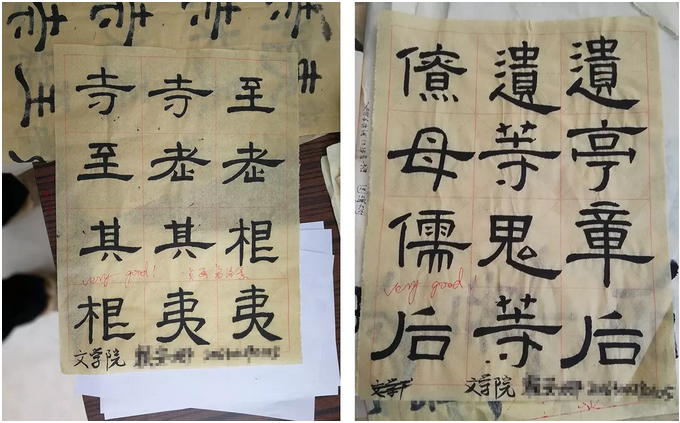 寺寺至
至老老
其其相
very good!
相夷夷
文学院
僚遺遺
母等亭
儒鬼章
very good!
后等后
文学
文学院